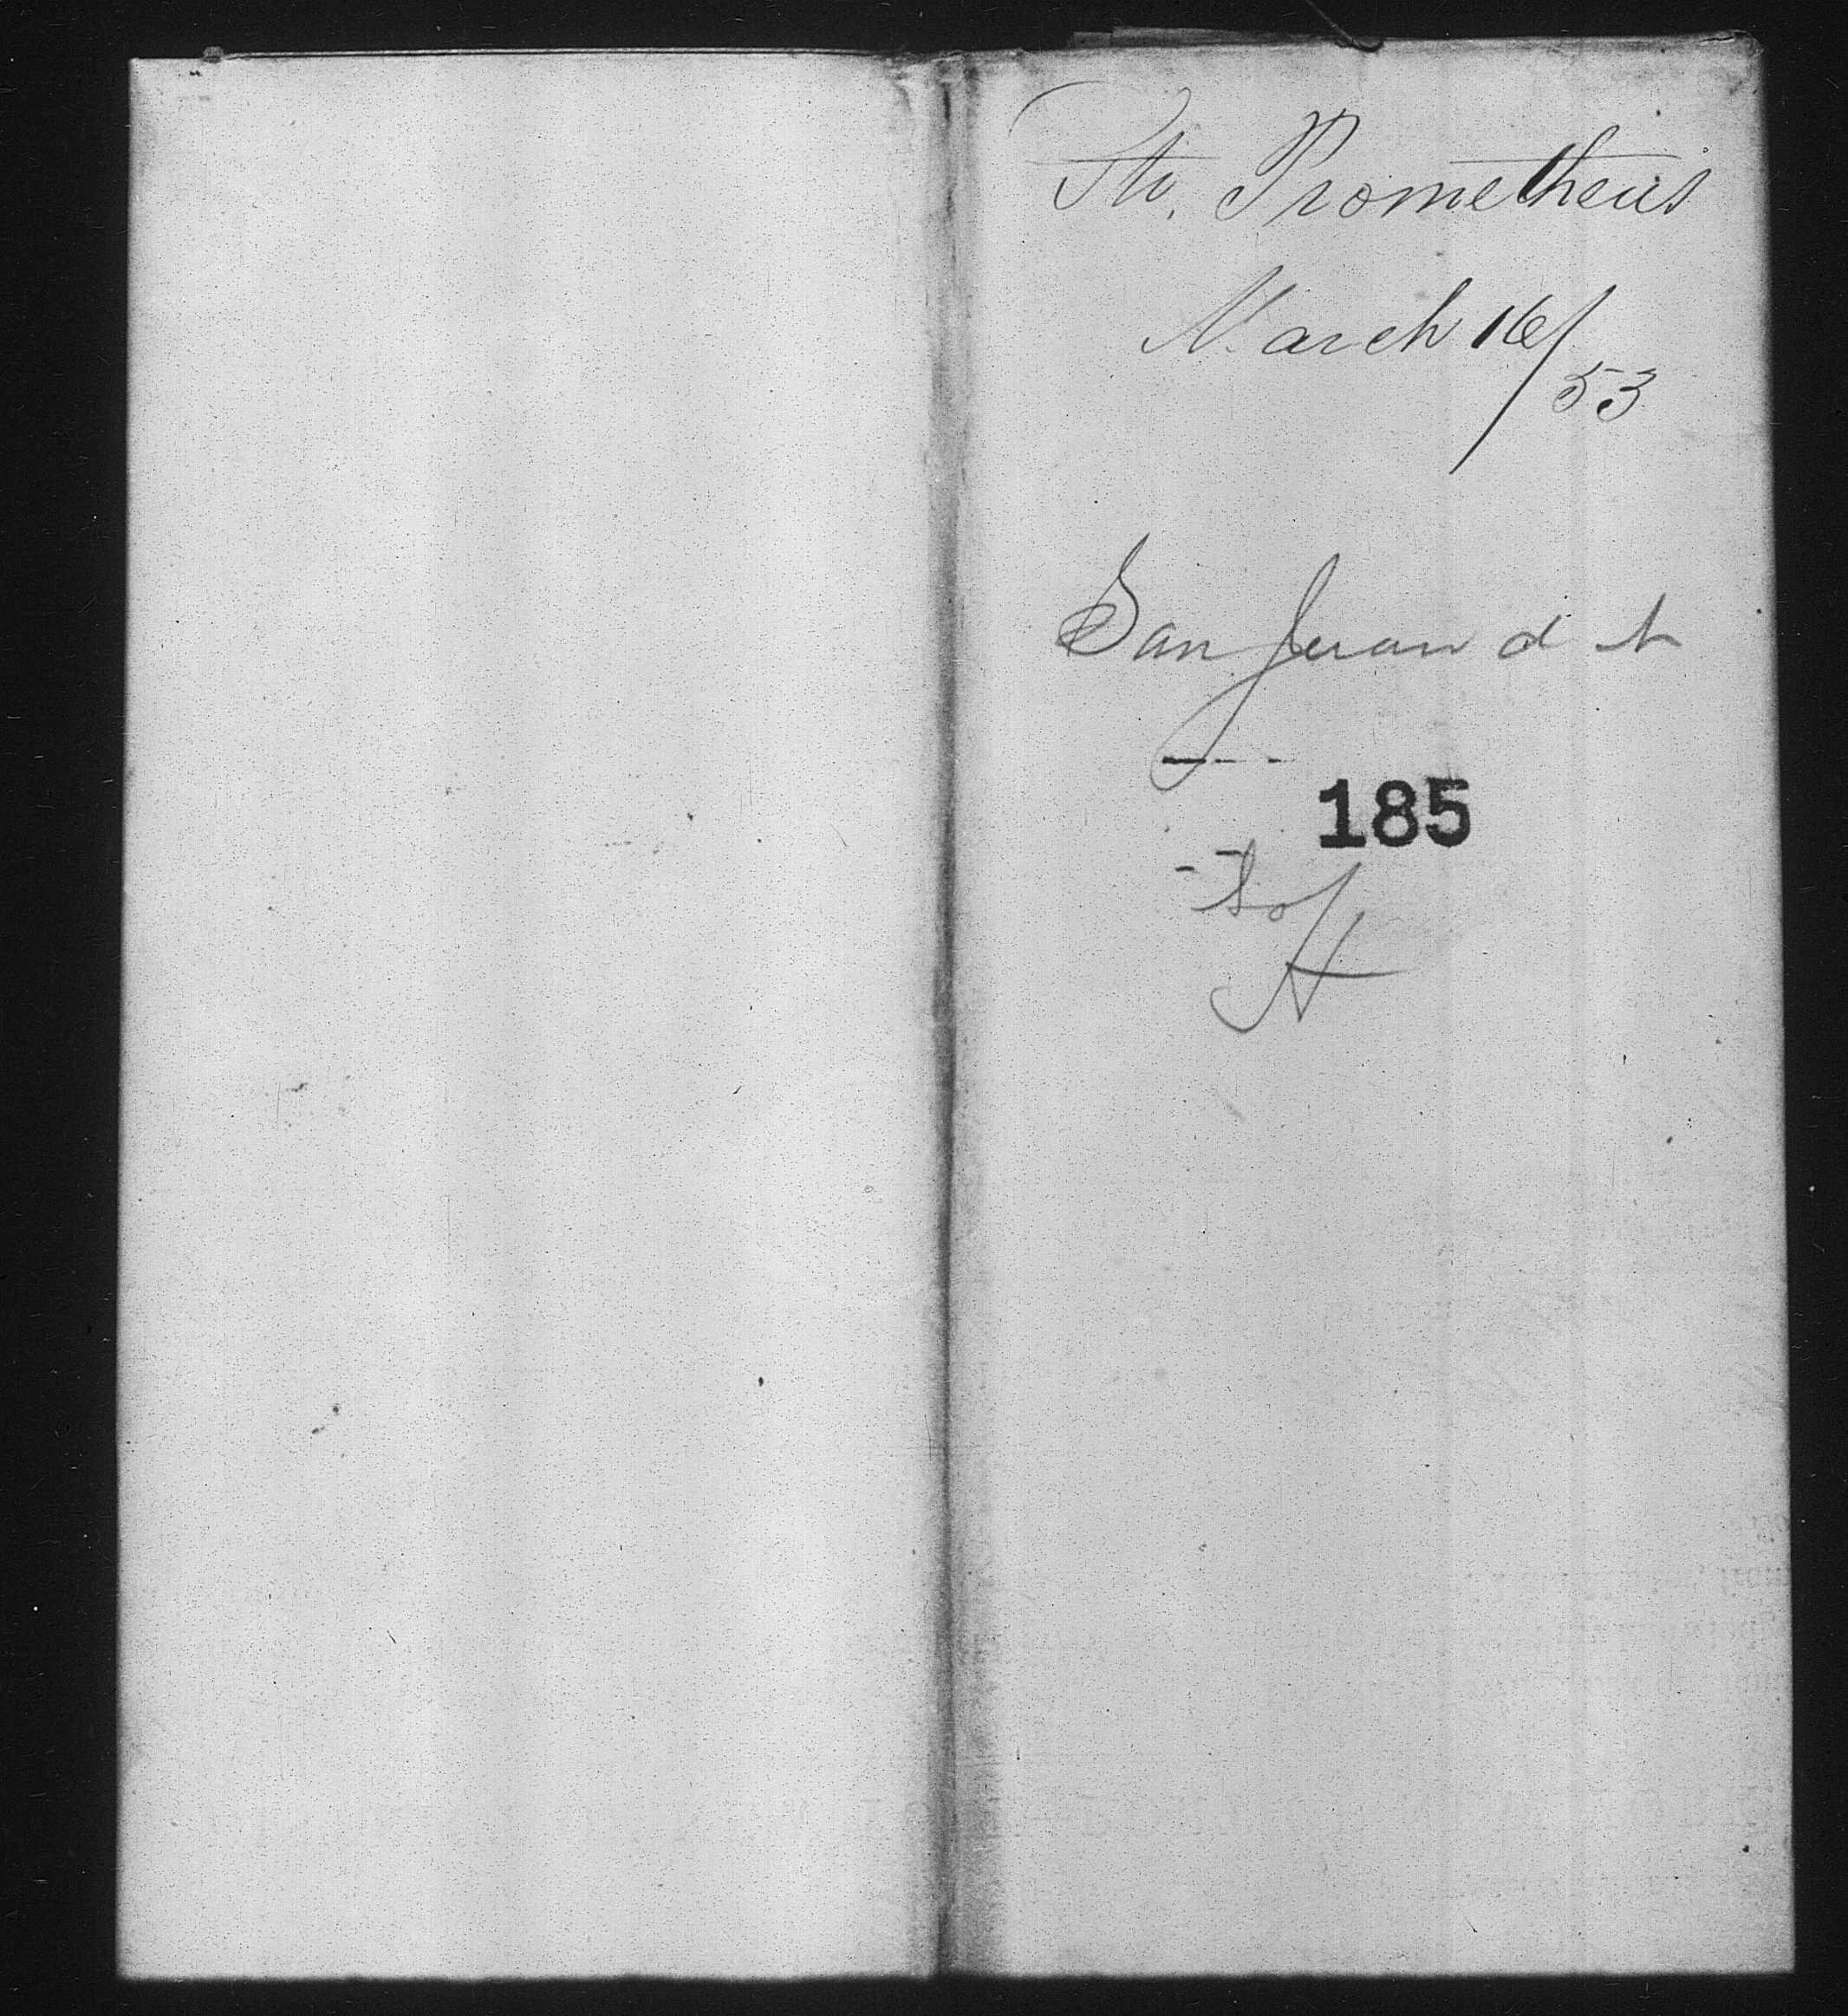 Str. Prometheus
March 16/
53
San Juan d N
185